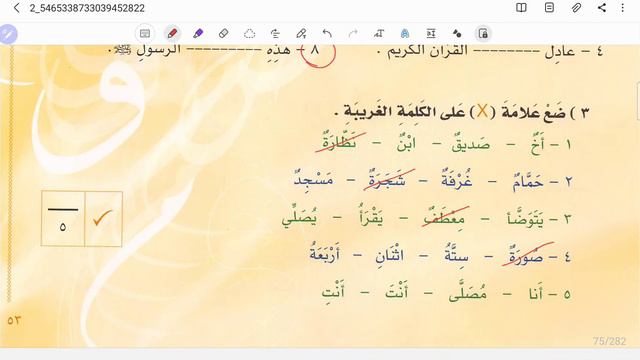 2_5465338733039452822
٤ – عادِل –––––––– القُرْآن الكَريم .
٨ – هٰذِهِ ––––––––– الرسولِ ﷺ.
٣ ) ضَعْ عَلامَةَ (X) عَلى الكَلِمَةِ الغَريبَةِ .
١ – أَخٌ – صَديقٌ – ابْنٌ – نَظّارَةٌ
٢ – حَمَّامٌ – غُرْفَةٌ – شَجَرَةٌ – مَسْجِدٌ
٣ – يَتَوَضَّأُ – مِعْطَفٌ – يَقْرَأُ – يُصَلِّي
٤ – صُورَةٌ – سِتَّةٌ – اثْنَانِ – أَرْبَعَةٌ
٥ – أَنا – مُصَلَّى – أَنْتَ – أَنْتِ
٥
٥٣
75/282